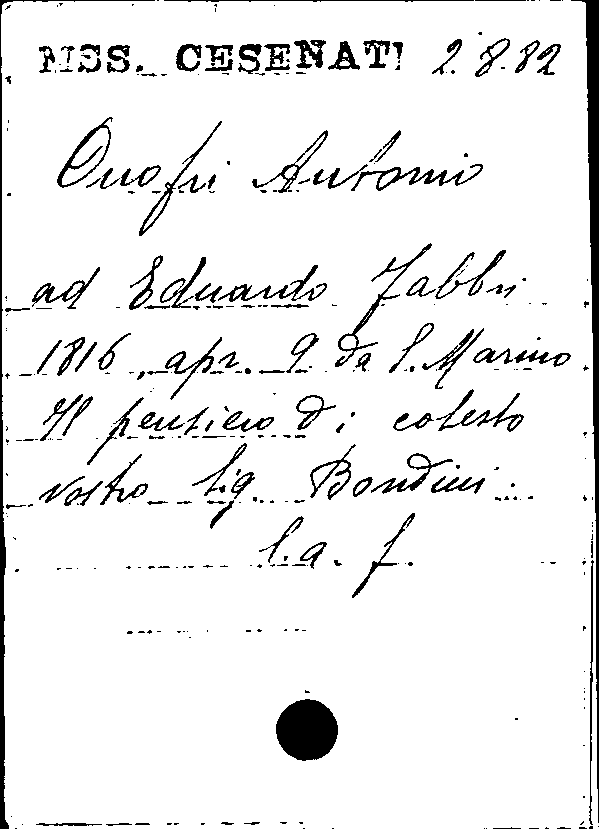 MSS. CESENATI 2.8.82
Onofri Antonio
ad Eduardo Fabbri
1816, apr. 9 da S. Marino
Il pensiero di cotesto
vostro Sig. Bondini..
l.a.f.